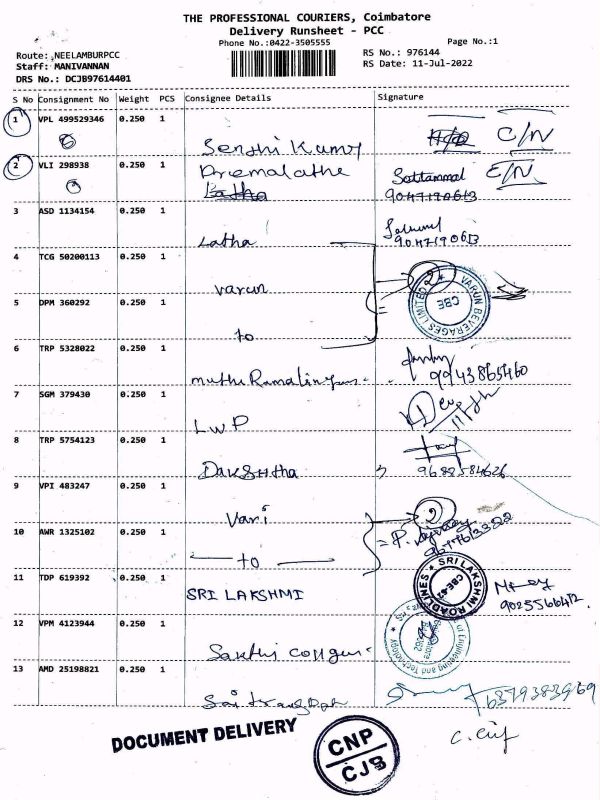 THE PROFESSIONAL COURIERS, Coimbatore
Delivery Runsheet - PCC
Phone No.:0422-3505555
Page No.:1
Route: NEELAMBURPCC
Staff: MANIVANNAN
DRS No.: DCJB97614401
RS No.: 976144
RS Date: 11-Jul-2022
S No Consignment No Weight PCS Consignee Details Signature
1 VPL 499529346 0.250 1 C/N
2 VLI 298938 0.250 1 Premalatha Latha E/N
9047190613
3 ASD 1134154 0.250 1 Latha 9047190613
4 TCG 50200113 0.250 1 Varun 2
VARUN BEVERAGES LIMITED
CBE
5 DPM 360292 0.250 1 to
6 TRP 5328022 0.250 1 9943865460
7 SGM 379430 0.250 1 LWP
8 TRP 5754123 0.250 1 Dakshtha 9688584626
9 VPI 483247 0.250 1 Vari 2
10 AWR 1325102 0.250 1 to
11 TDP 619392 0.250 1 SRI LAKSHMI
SRI LAKSHMI ROADLINES
CBE-62
12 VPM 4123944 0.250 1 Sakthi
of Engineering and Technology
13 AMD 25198821 0.250 1 6379383969
DOCUMENT DELIVERY
CNP
CJB